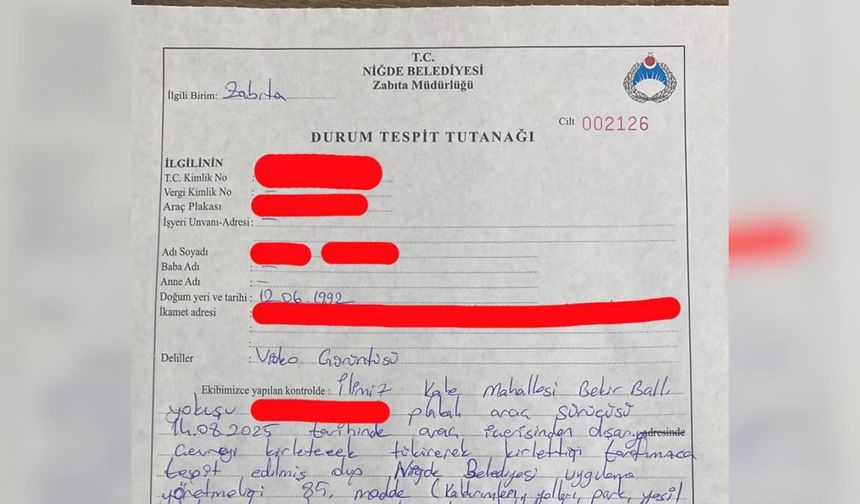 T.C.
NİĞDE BELEDİYESİ
Zabıta Müdürlüğü
İlgili Birim: Zabıta
Cilt 002126
DURUM TESPİT TUTANAĞI
İLGİLİNİN
T.C. Kimlik No :
Vergi Kimlik No : —
Araç Plakası :
İşyeri Unvanı-Adresi: —
Adı Soyadı :
Baba Adı : —
Anne Adı : —
Doğum yeri ve tarihi : 12.06.1992
İkamet adresi :
Deliller : Video Görüntüsü
Ekibimizce yapılan kontrolde : İlimiz Kale Mahallesi Bekir Ballı
yokuşu plakalı araç sürücüsü
14.08.2025 tarihinde araç içerisinden dışarıya adresinde
Çevreyi kirletecek tükürerek kirlettiği tarafımızca
tespit edilmiş olup Niğde Belediyesi uygulama
yönetmeliği 85. madde (Kaldırımları, yolları, park, yeşil